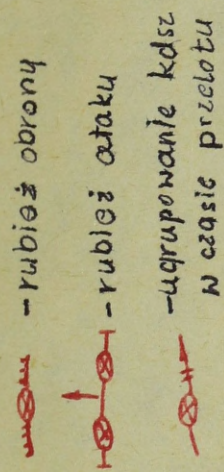 - rubież obrony
- rubież ataku
- ugrupowanie kdsz
w czasie przelotu